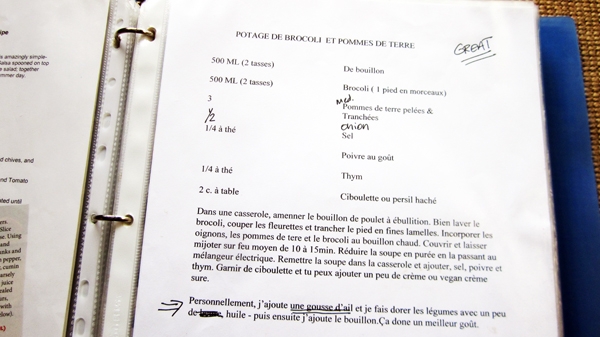 ipe
s amazingly simple-
Salsa spooned on top
e salad, together
ummer day.
d chives, and
nd Tomato
oted until
ers.
Slice
. Using
and
nks and
pepper,
, cumin
arsely
juice
ealed
ures.
with
below)
POTAGE DE BROCOLI ET POMMES DE TERRE
GREAT
500 ML (2 tasses) De bouillon
500 ML (2 tasses) Brocoli ( 1 pied en morceaux)
3 med. Pommes de terre pelées &
Tranchées
1/2 onion
1/4 à thé Sel
Poivre au goût
1/4 à thé Thym
2 c. à table Ciboulette ou persil haché
Dans une casserole, amenner le bouillon de poulet à ébullition. Bien laver le
brocoli, couper les fleurettes et trancher le pied en fines lamelles. Incorporer les
oignons, les pommes de tere et le brocoli au bouillon chaud. Couvrir et laisser
mijoter sur feu moyen de 10 à 15min. Réduire la soupe en purée en la passant au
mélangeur électrique. Remettre la soupe dans la casserole et ajouter, sel, poivre et
thym. Garnir de ciboulette et tu peux ajouter un peu de crème ou vegan crème
sure.
Personnellement, j'ajoute une gousse d'ail et je fais dorer les légumes avec un peu
de huile - puis ensuite j'ajoute le bouillon.Ça donne un meilleur goût.